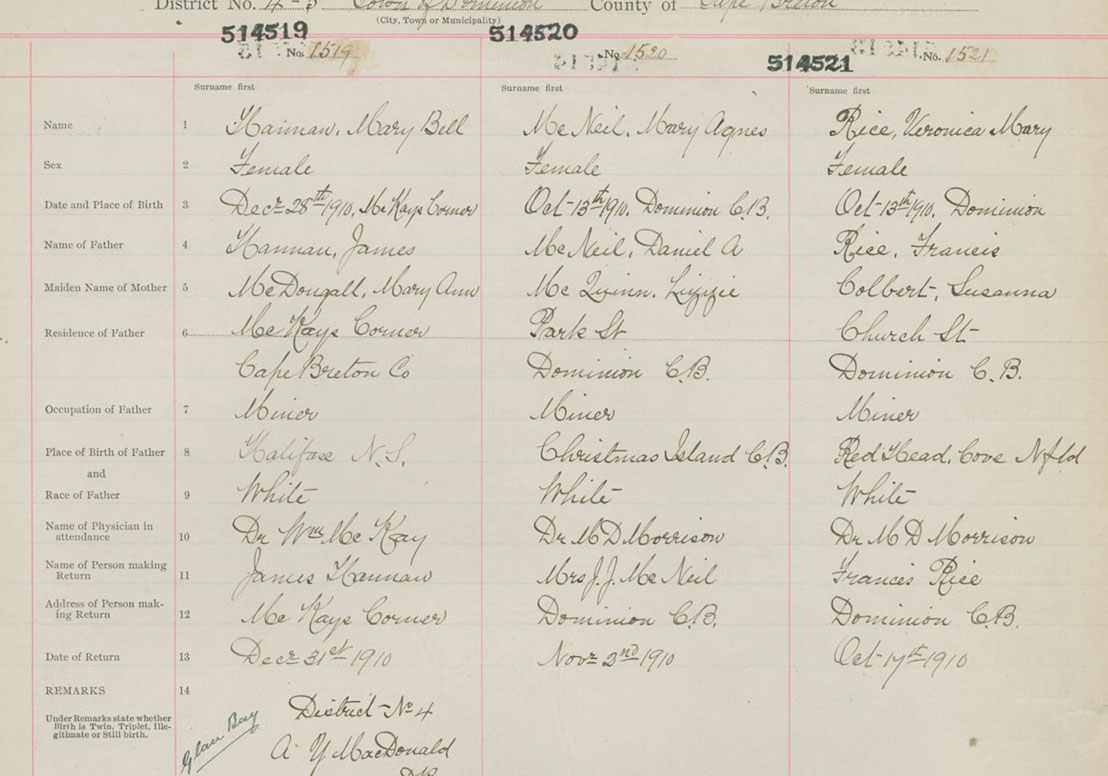 District No. 4-5 Town of Dominion County of Cape Breton
(City, Town or Municipality)
514519 514520 514521
No. 1519 No. 1520 No. 1521
Surname first Surname first Surname first
Name 1 Hannan, Mary Bell Mc Neil, Mary Agnes Rice, Veronica Mary
Sex 2 Female Female Female
Date and Place of Birth 3 Decr 28th 1910, McKays Corner Oct 13th 1910, Dominion C.B. Oct 13th 1910, Dominion
Name of Father 4 Hannan, James Mc Neil, Daniel A Rice, Francis
Maiden Name of Mother 5 McDougall, Mary Ann Mc Quinn, Lizzie Colbert, Susanna
Residence of Father 6 Mc Kays Corner Park St Church St
Cape Breton Co Dominion C.B. Dominion C.B.
Occupation of Father 7 Miner Miner Miner
Place of Birth of Father 8 Halifax N.S. Christmas Island C.B. Red Head Cove Nfld
and
Race of Father 9 White White White
Name of Physician in
attendance 10 Dr Wm Mc Kay Dr M D Morrison Dr M D Morrison
Name of Person making
Return 11 James Hannan Mrs J. J. Mc Neil Francis Rice
Address of Person mak-
ing Return 12 Mc Kays Corner Dominion C.B. Dominion C.B.
Date of Return 13 Decr 31st 1910 Novr 2nd 1910 Oct 17th 1910
REMARKS 14
Under Remarks state whether
Birth is Twin, Triplet, Ille-
gitimate or Still birth.
District No 4
Glace Bay
A. Y MacDonald
DR